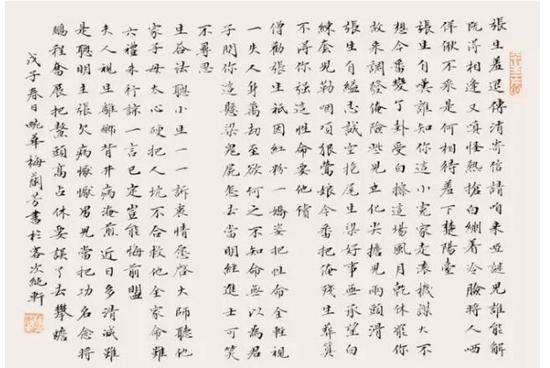 張生羞退傳消寄信請咱來並謎兒誰能解
既淂相逢又嗔怪熱搶白綳着冷臉將人哂
不采是何相待羞下楚陽臺
張生自嘆誰知你這小寃家是機謀大不
想今番變了卦受白這場風月乾休罷你
故來調發俺險些兒立化尖擔兒兩頭滑
張生自縊志誠空抱尾生梁好事無承望白
練套兒勒咽項狠鶯娘今番把俺殘生葬
不淂你這性命要他償
僧勸張生祇因紅粉一嬌娃把性命全輕視
一失人身萬劫至欲何之不知命無以為君
子問你這懸梁鬼屍怎去當明經進士可笑
不尋思
生啓法聰小生一一訴衷情懇啓大師聽他
家子母太心硬把人坑不合救他全家命難
六禮未行諒一言已定豈能悔前盟
夫人視生離鄉背井病淹煎近日多清減難
是聰明主張欠病懨懨男兒當把功名念將
鵬程奮展把鰲頭高占休要誤了去攀蟾
戊子春日畹華梅蘭芳書於客次軒